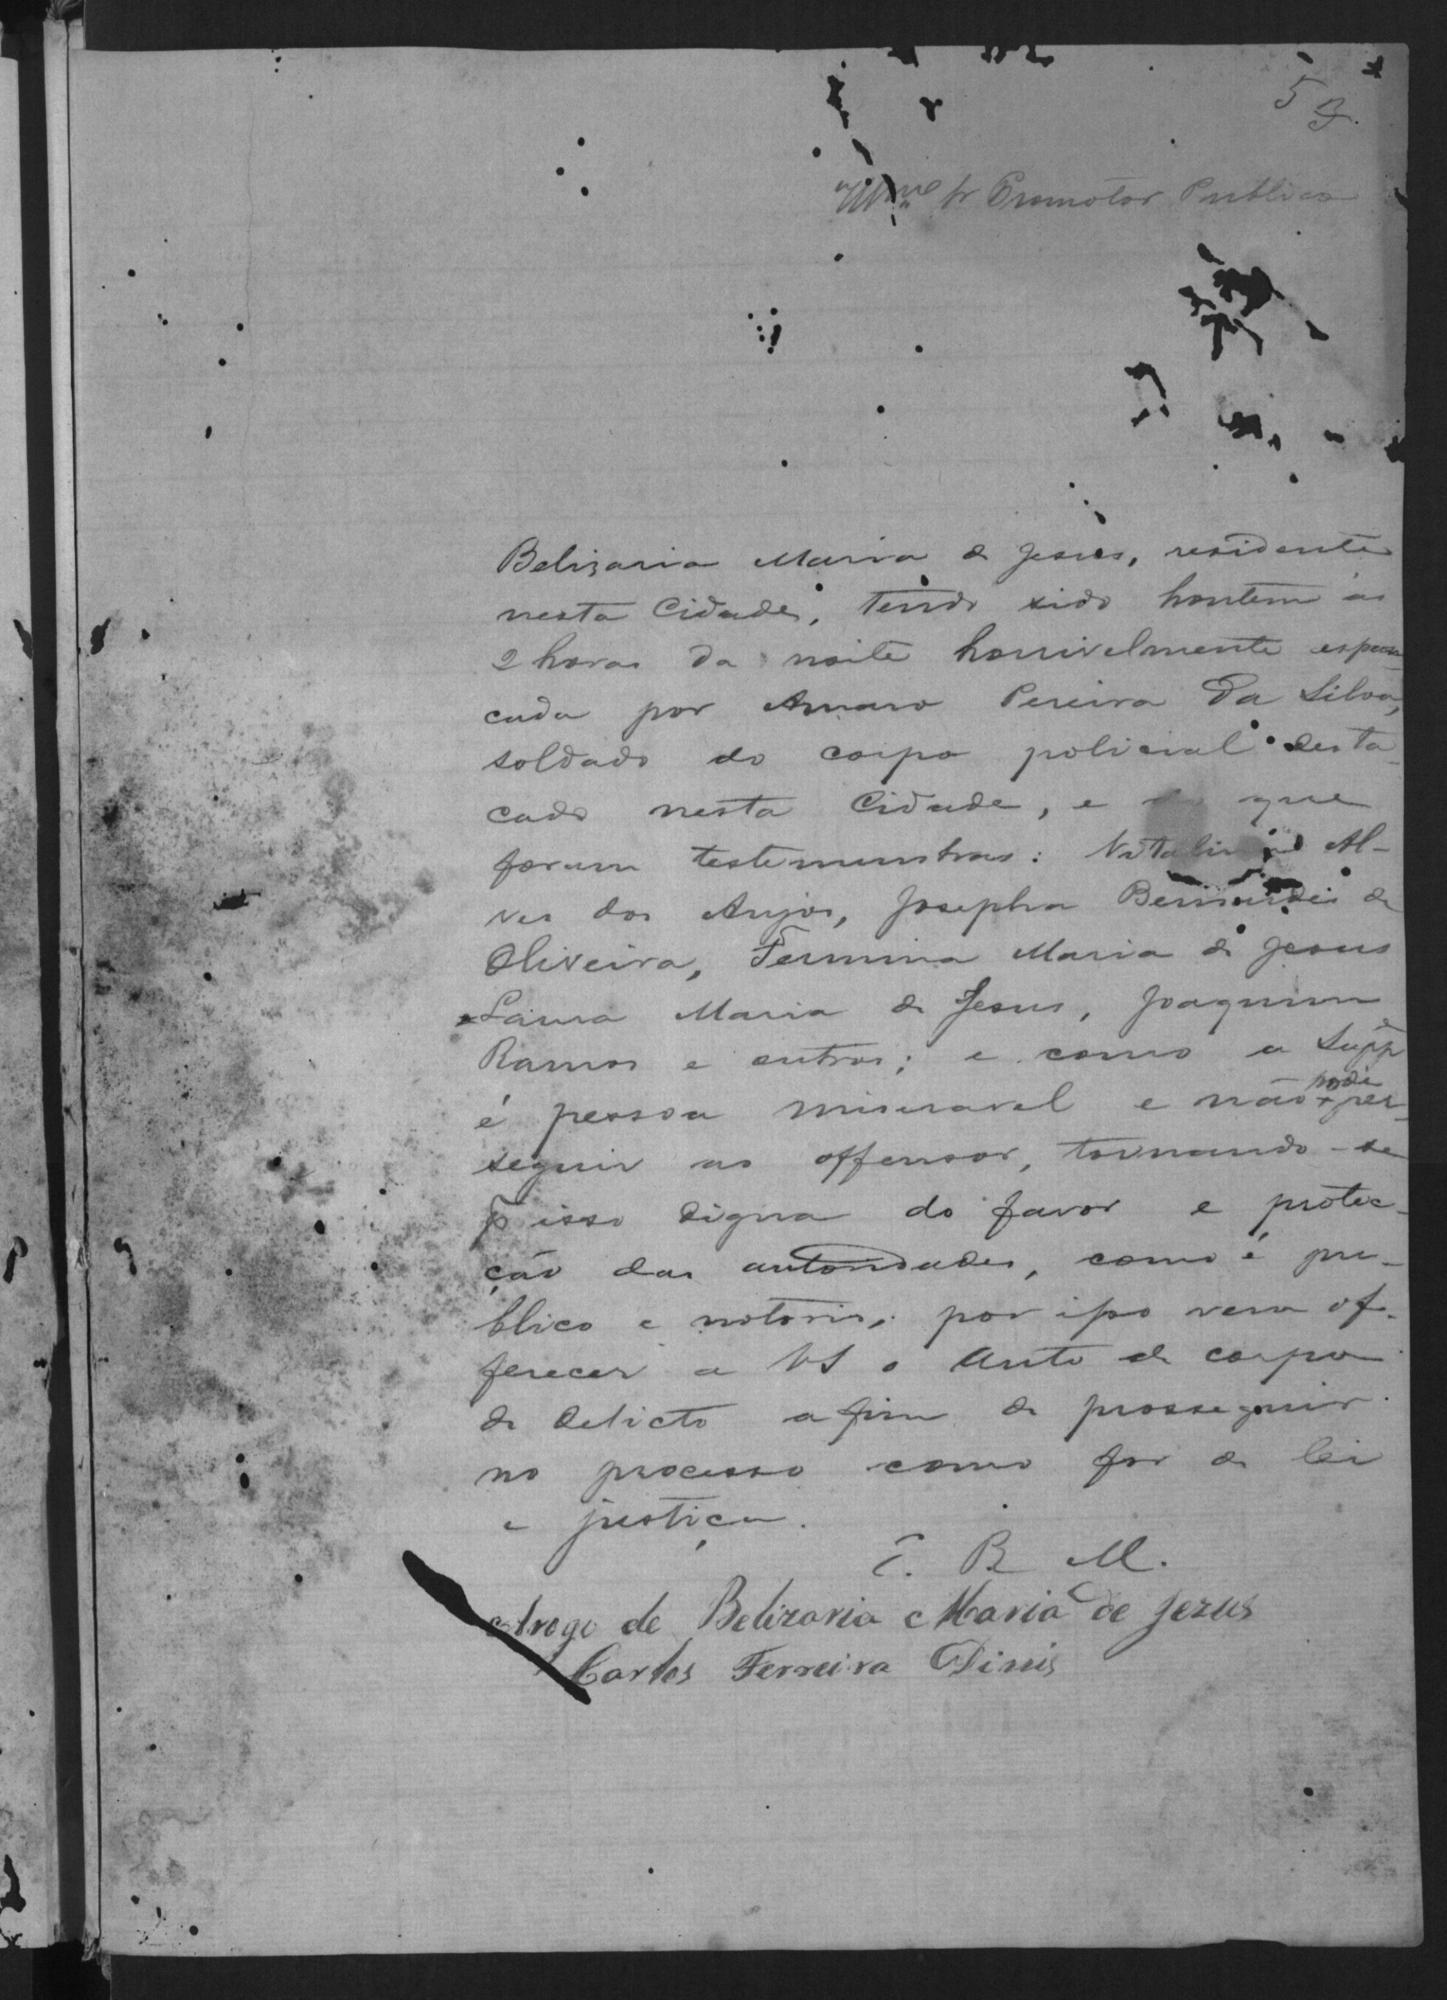 5
Illmo Sr Promotor Publico
Belizaria Maria de Jesus, residente
nesta Cidade, tendo sido hontem ás
2 horas da noite horrivelmente espan-
cada por Amaro Pereira da Silva,
soldado do corpo policial desta-
cado nesta Cidade, e que
foram testemunhas: Al-
ves dos Anjos, Josepha Bernardes de
Oliveira, Fermina Maria de Jesus
Laura Maria de Jesus, Joaquim
Ramos e outros; e como a Suppe
é pessoa miseravel e não pode per-
seguir ao offensor, tornando-se
p isso digna do favor e protec-
ção das autoridades, como é pu-
blico e notorio, por isso vem of-
ferecer a VS o Auto de corpo
de delicto a fim de prosseguir
no processo como for de lei
e justiça.
E. R. M.
Arogo de Belizaria Maria de Jezus
Carlos Ferreira Dinis